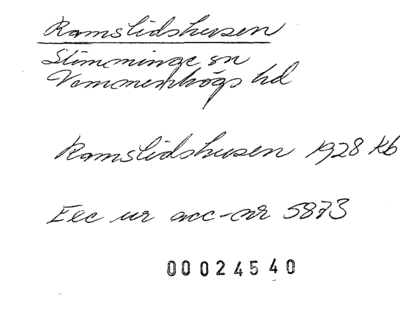 Ramslidshusen
Slimminge sn
Vemmenhögs hd
Ramslidshusen 1928 Kb
Exc ur acc-nr 5873
00024540